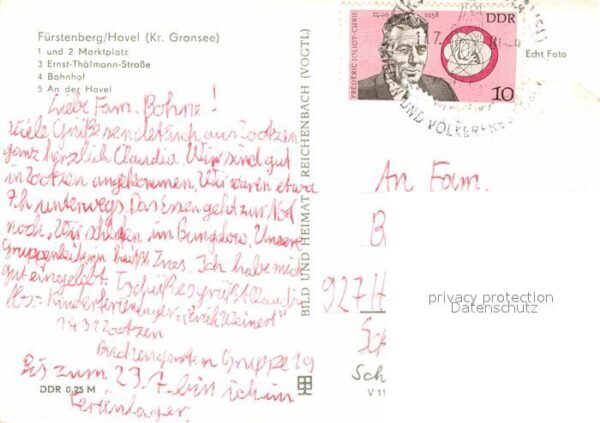 Fürstenberg/Havel (Kr. Gransee)
1 und 2 Marktplatz
3 Ernst-Thälmann-Straße
4 Bahnhof
5 An der Havel
Liebe Fam. Bohne!
Viele Grüße sendet Euch aus Zootzen
ganz herzlich Claudia. Wir sind gut
in Zootzen angekommen. Wir waren etwa
7h unterwegs. Das Essen geht zur Not
noch. Wir schlafen im Bungalow. Unsere
Gruppenleiterin heißt Ines. Ich habe mich
gut eingelebt. Tschüß es grüßt Claudia
Kinderferienlager „Erich Weinert"
1431 Zootzen
Gruppe 19
Bis zum 23.7. bin ich im
Ferienlager.
DDR 0,25 M
BILD UND HEIMAT REICHENBACH (VOGTL)
1900 1958
DDR
FRÉDÉRIC JOLIOT-CURIE
10
UND VÖLKERFREUNDSCHAFT
Echt Foto
An Fam.
B
927 H
Sch
Sch
V 11
privacy protection
Datenschutz